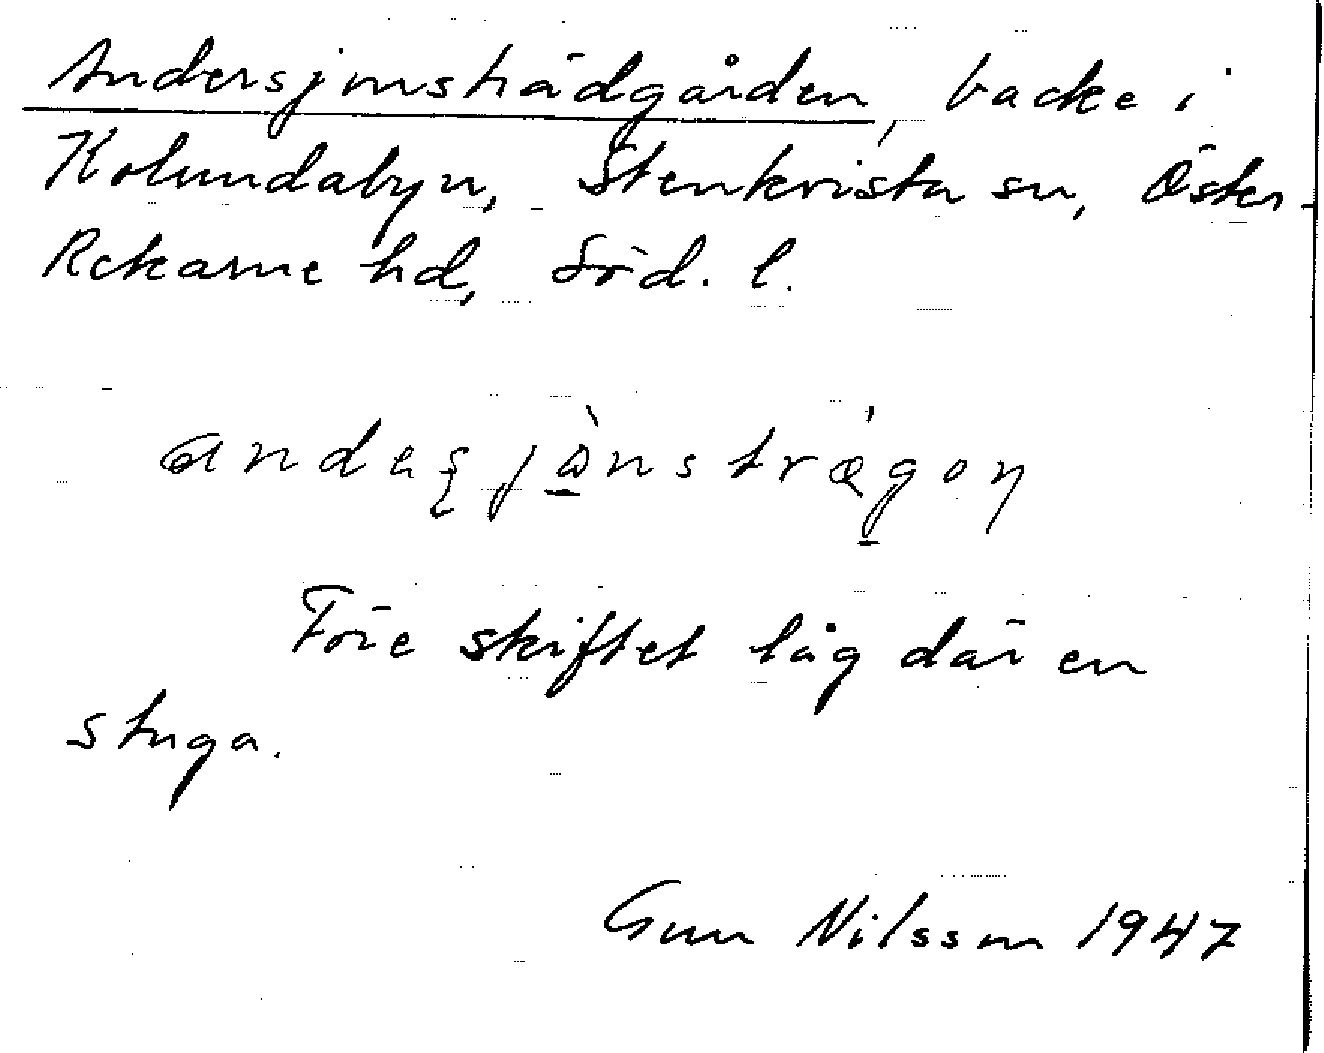 Andersjonsträdgården, backe i
Kolundabyn, Stenkvista sn, Öster-
Rekarne hd, Söd. l.
Före skiftet låg där en
stuga.
Gun Nilsson 1947